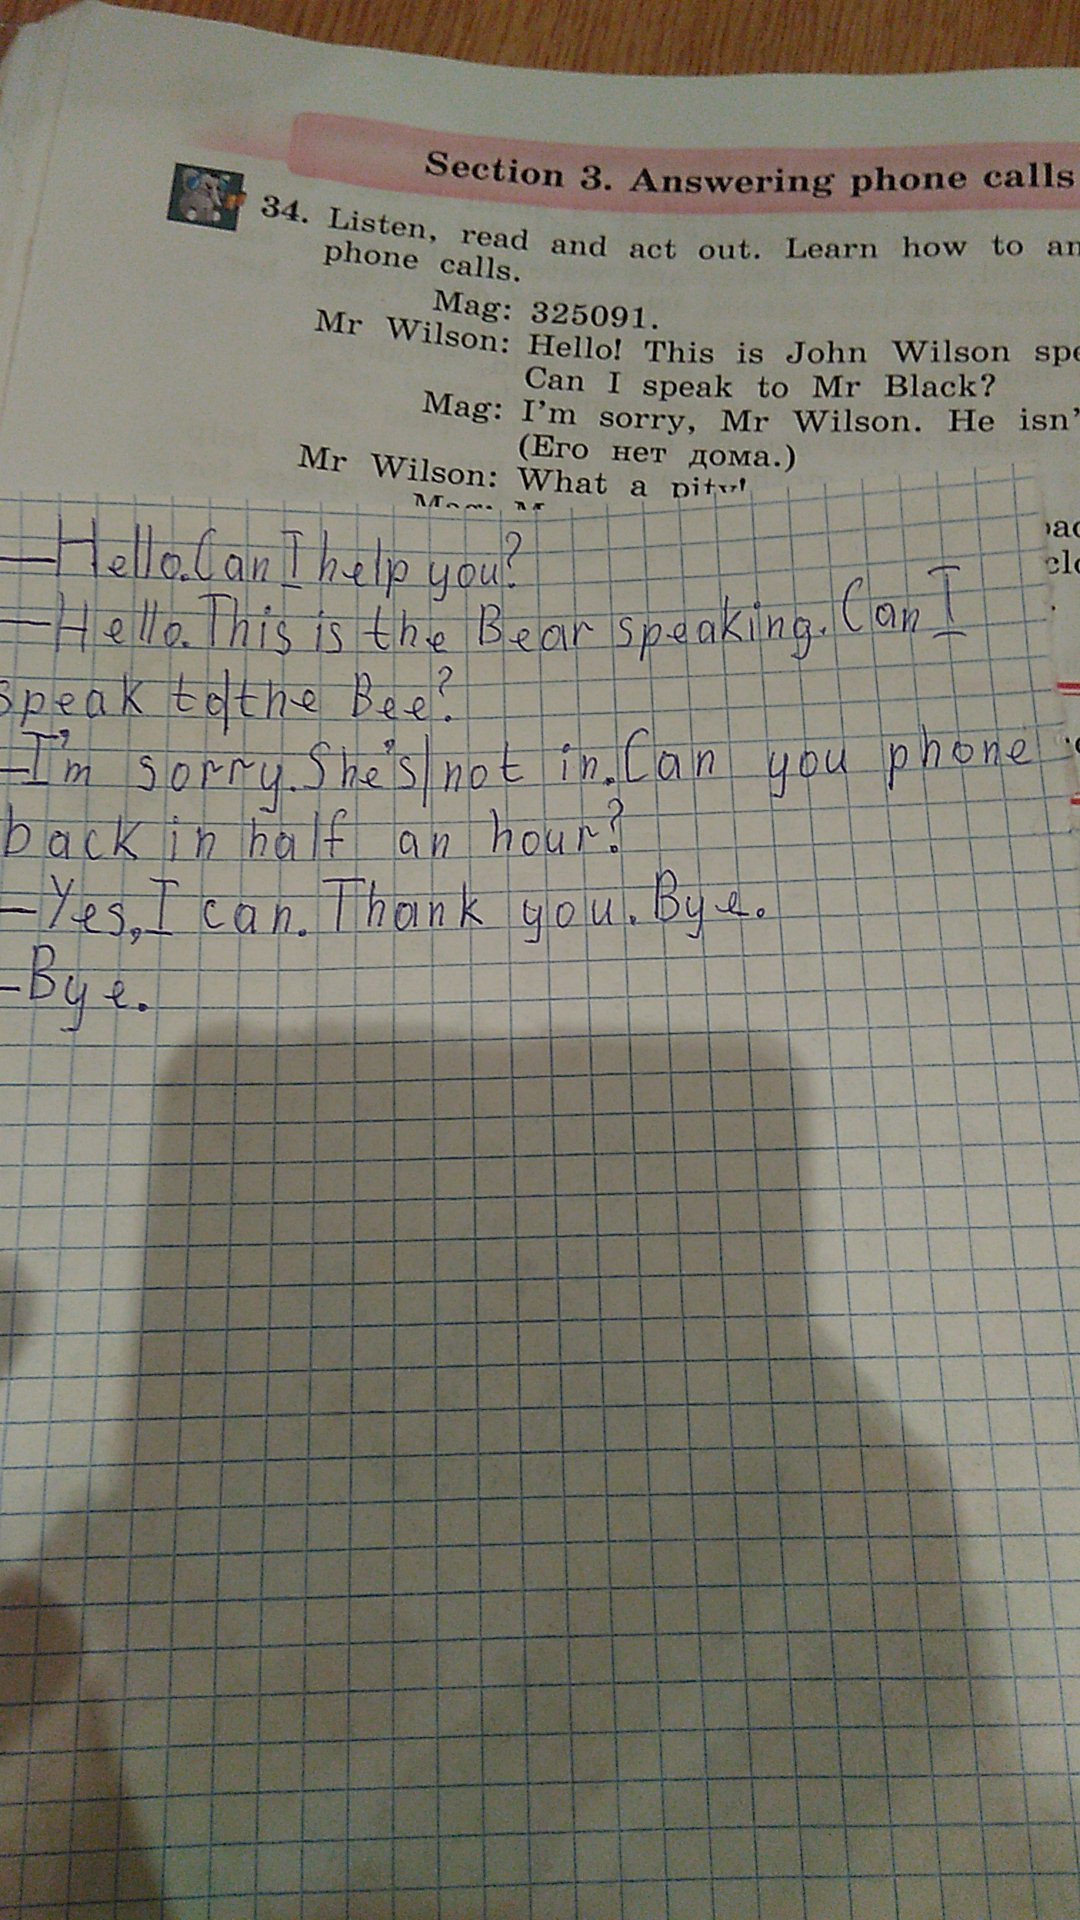 Section 3. Answering phone calls
34. Listen, read and act out. Learn how to
phone calls.
Mag: 325091.
Mr Wilson: Hello! This is John Wilson
Can I speak to Mr Black?
Mag: I'm sorry, Mr Wilson. He
(Его нет дома.)
Mr Wilson: What a pity!
—Hello. Can I help you?
—Hello. This is the Bear speaking. Can I
speak to the Bee?
—I'm sorry. She's not in. Can you phone
back in half an hour?
—Yes, I can. Thank you. Bye.
—Bye.